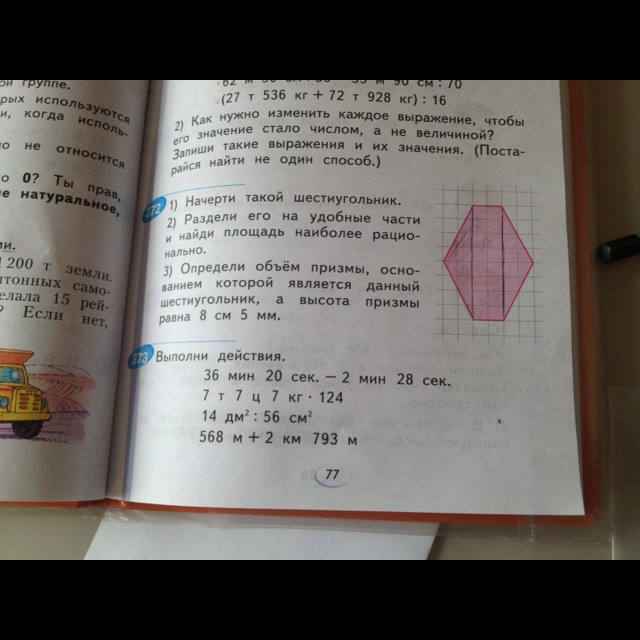 ой группе.
рых используются
и, когда исполь-
о не относится
о 0? Ты прав,
е натуральное,
ми.
1200 т земли.
тонных само-
елала 15 рей-
? Если нет,
(27 т 536 кг + 72 т 928 кг) : 16
2) Как нужно изменить каждое выражение, чтобы
его значение стало числом, а не величиной?
Запиши такие выражения и их значения. (Поста-
райся найти не один способ.)
372 1) Начерти такой шестиугольник.
2) Раздели его на удобные части
и найди площадь наиболее рацио-
нально.
3) Определи объём призмы, осно-
ванием которой является данный
шестиугольник, а высота призмы
равна 8 см 5 мм.
373 Выполни действия.
36 мин 20 сек. − 2 мин 28 сек.
7 т 7 ц 7 кг · 124
14 дм² : 56 см²
568 м + 2 км 793 м
77